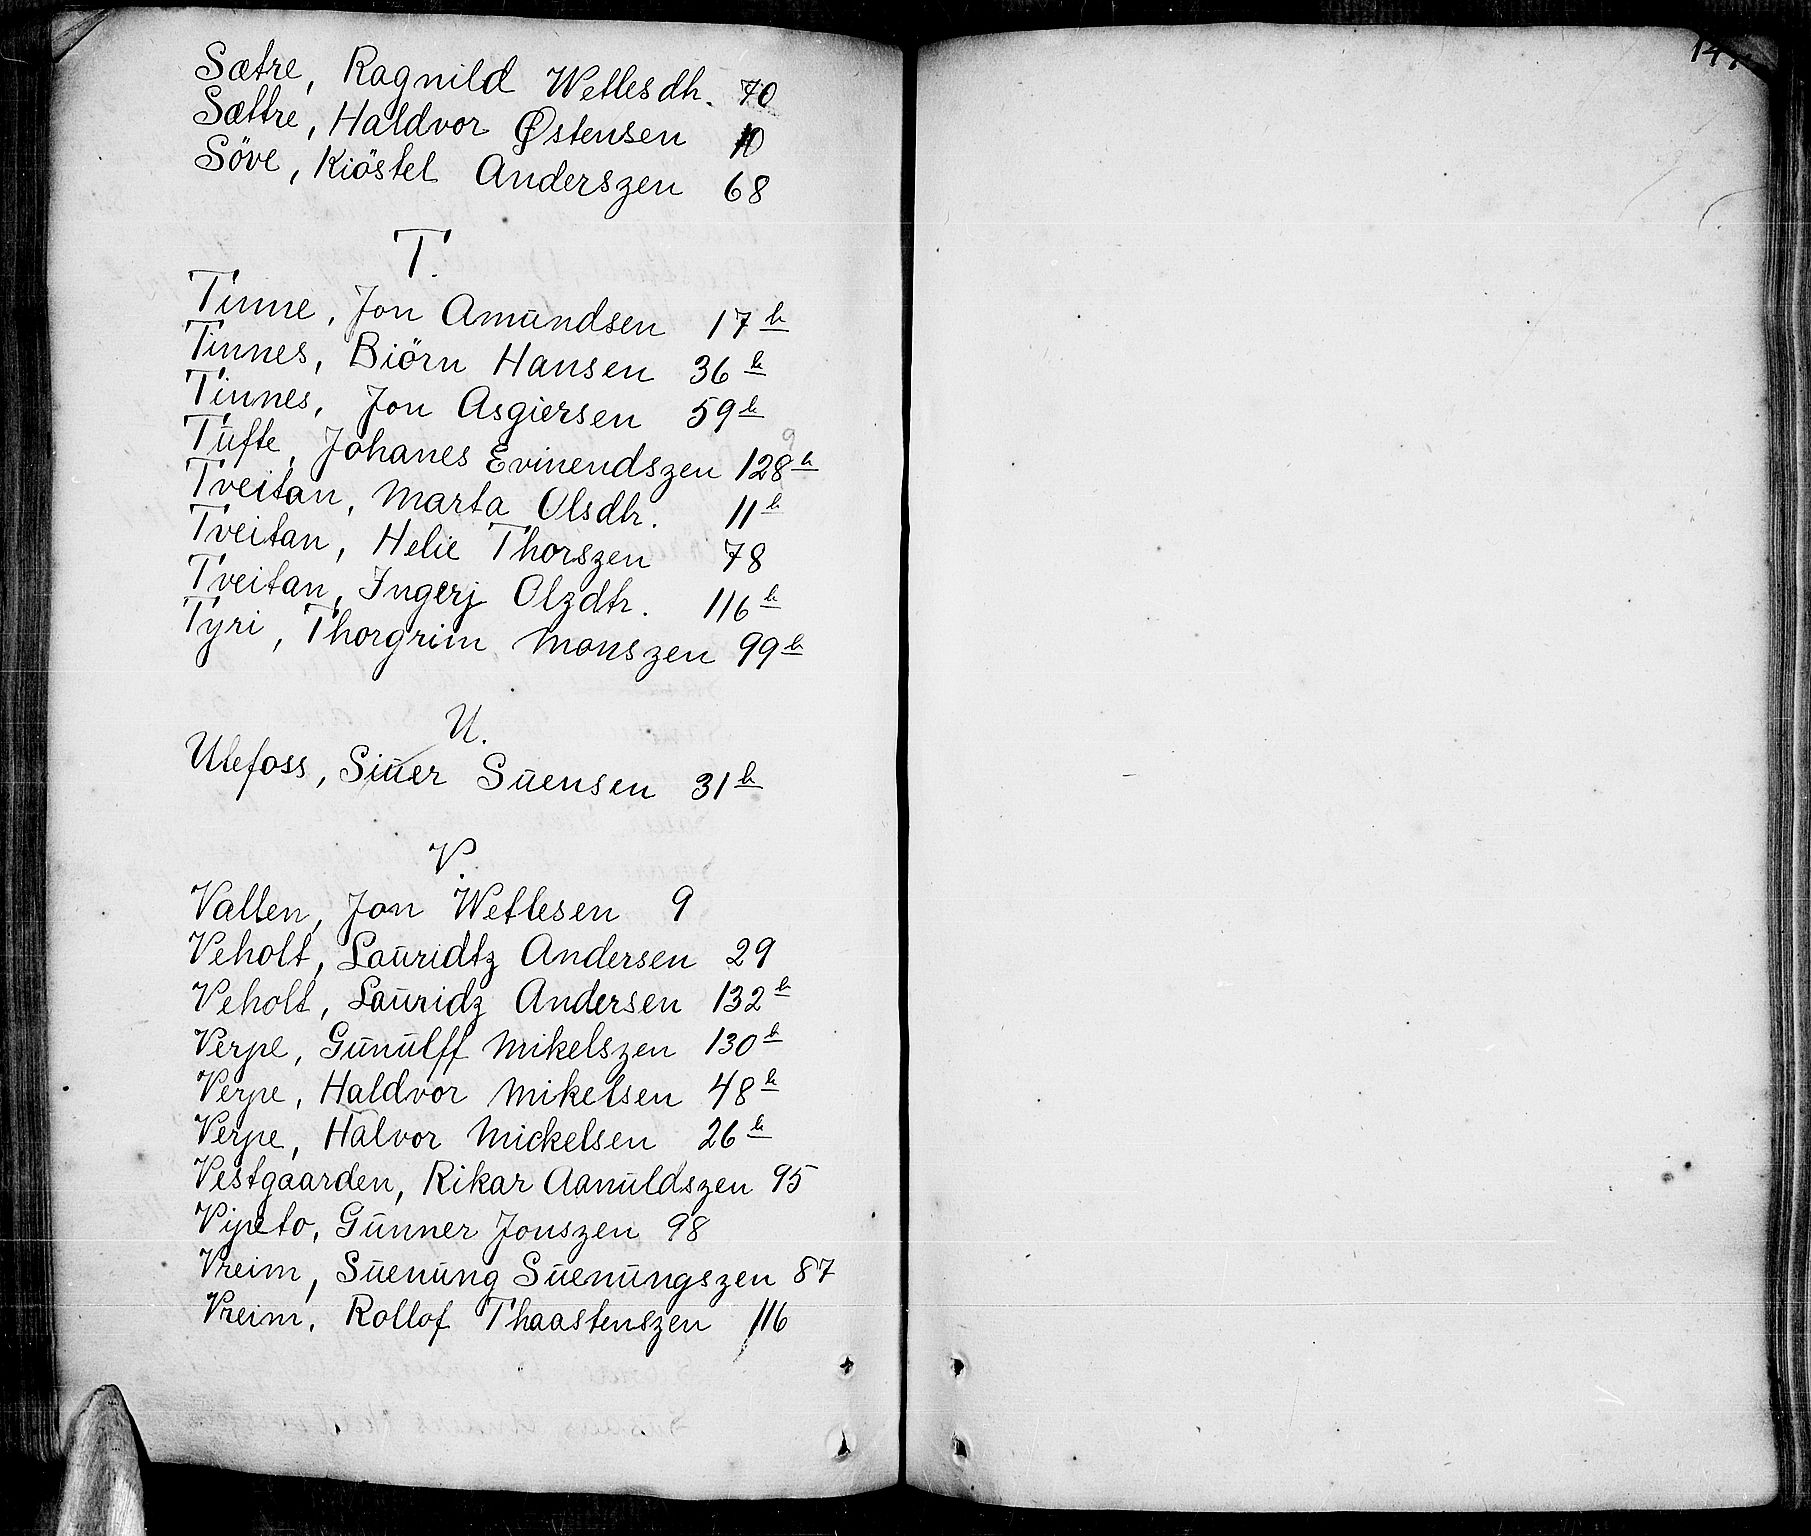 Sætre, Ragnild Wetlesdh. 70
Sættre, Haldvor Østensen 10
Söve, Kiöstel Anderszen 68
T.
Tinne, Jon Amŭndsen 17 b
Tinnes, Biörn Hansen 36 b
Tinnes, Jon Asgiersen 59 b
Tŭfte, Johanes Evinendszen 128 b
Tveitan, Marta Olsdtr. 11 b
Tveitan, Helie Thorszen 78
Tveitan, Ingerj Olzdtr. 116 b
Tyri, Thorgrim Monszen 99 b
U.
Ulefoss, Siŭer Sŭensen 31 b
V.
Vallen, Jon Wetlesen 9
Veholt, Laŭridtz Andersen 29
Veholt, Laŭridz Andersen 132 b
Verpe, Gŭnŭlff Mikelszen 130 b
Verpe, Haldvor Mikelsen 48 b
Verpe, Halvor Mickelsen 26 b
Vestgaarden, Rikar Aanŭldszen 95
Vipeto, Gŭnner Jonszen 98
Vreim, Sŭenŭng Sŭenŭngszen 87
Vreim, Rollof Thaastenszen 116